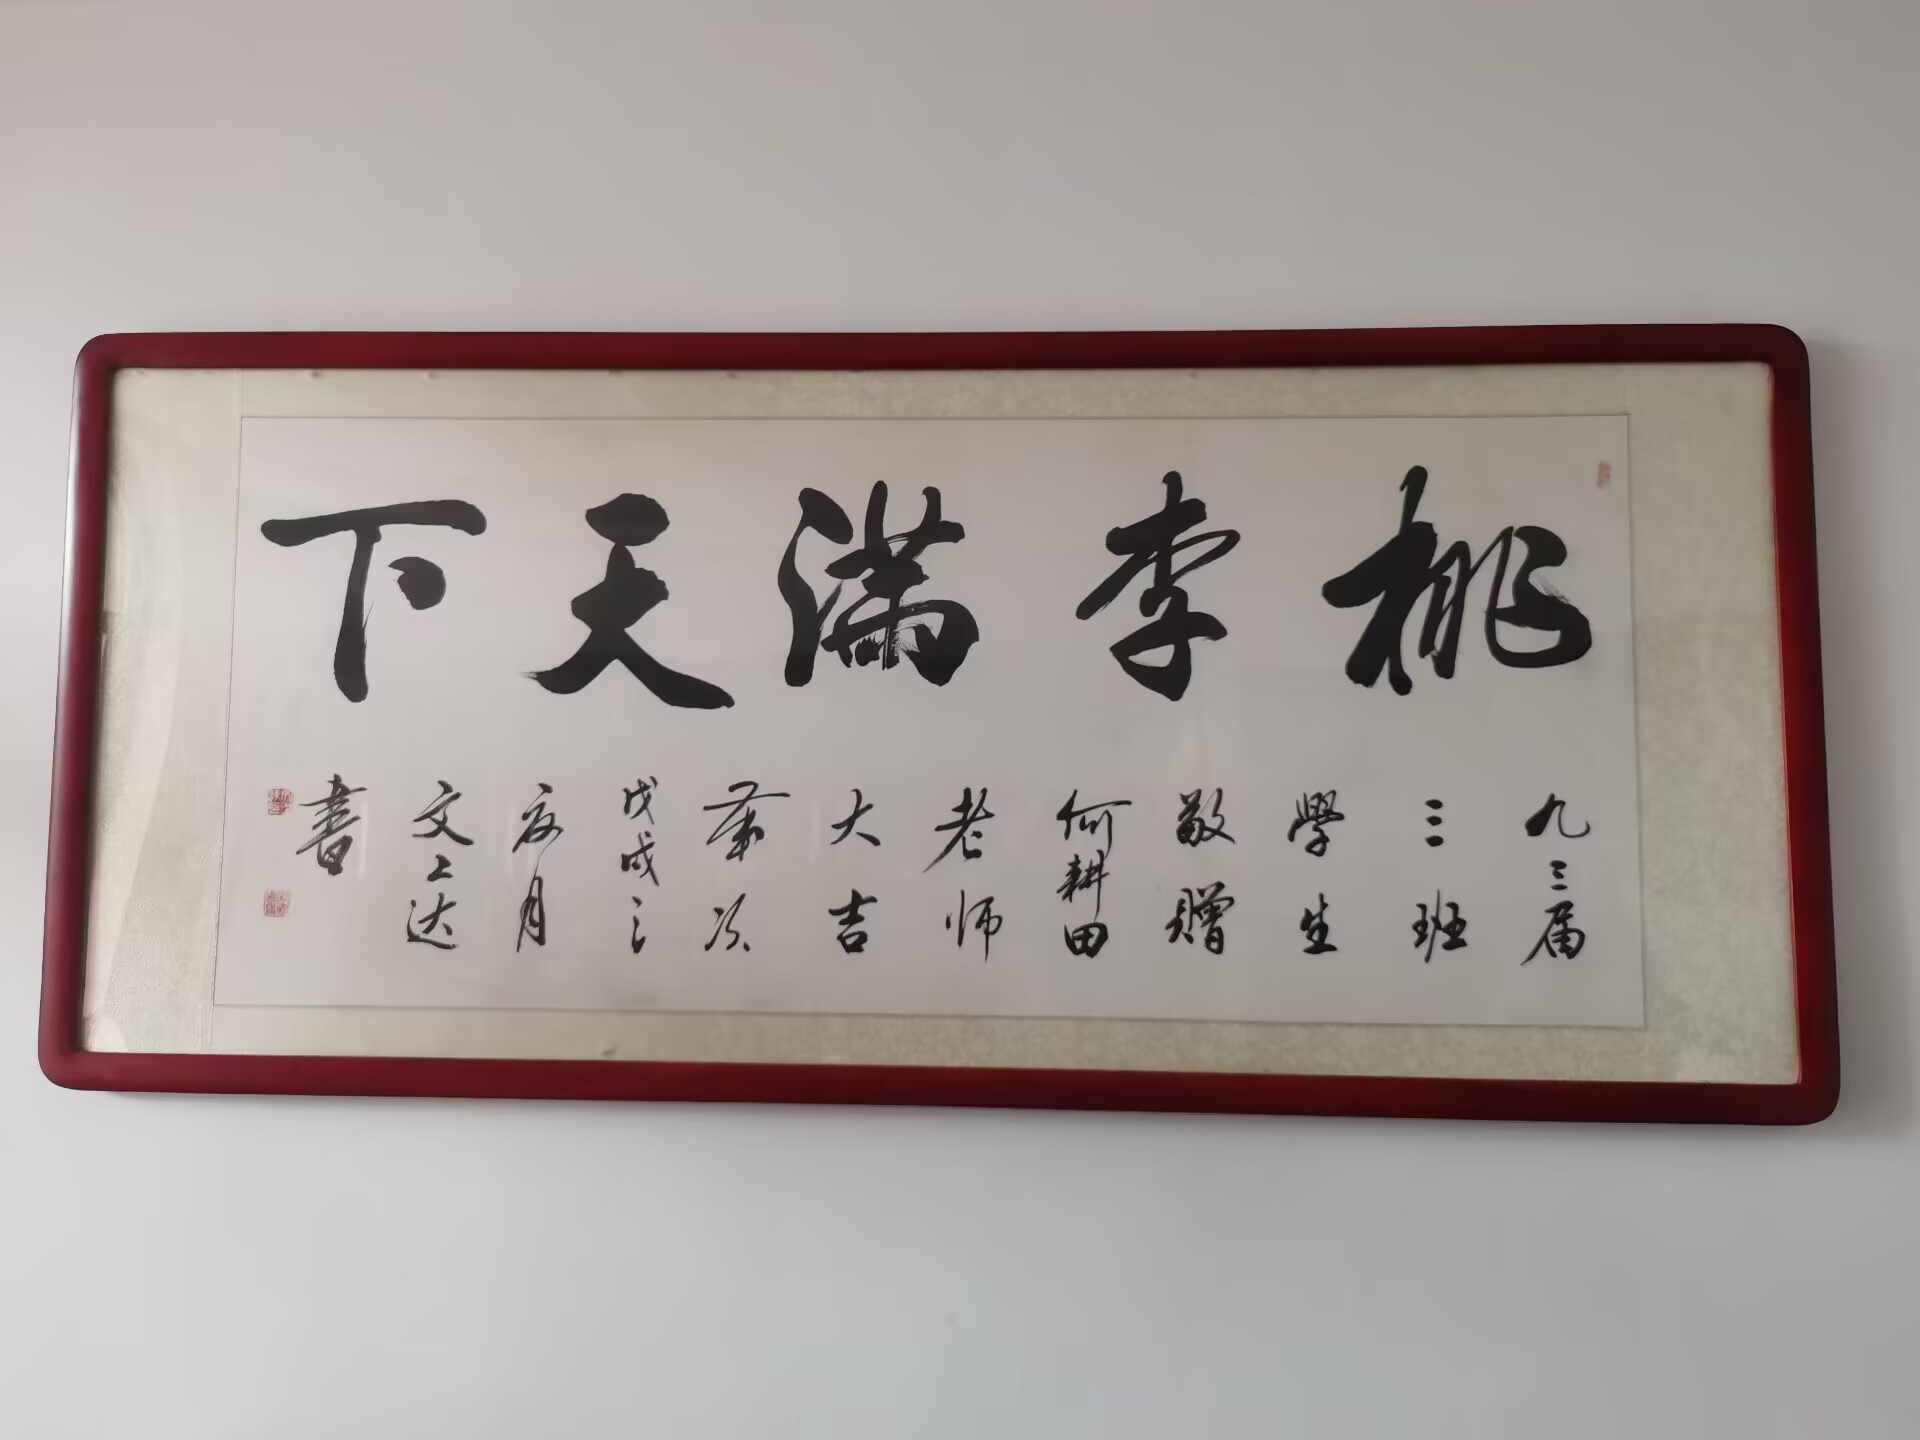 桃李满天下
九三届
三班
學生
敬贈
何耕田
老师
大吉
歲次
戊戌之
夏月
文上达
書